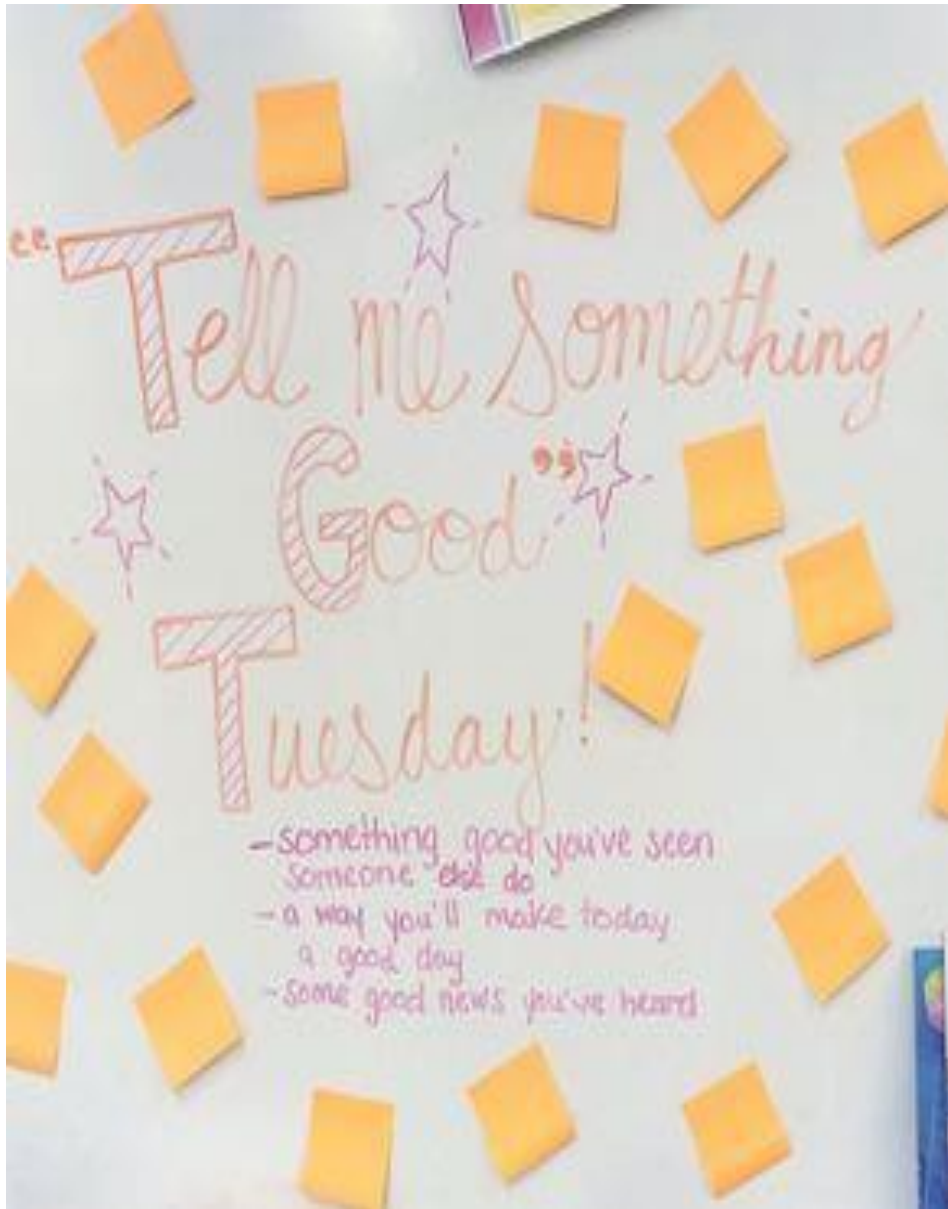 “Tell me something
Good”
Tuesday!
-something good you've seen
someone else do
-a way you'll make today
a good day
-some good news you've heard